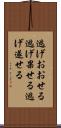 逃げおおせる
逃げ果せる逃
げ遂せる